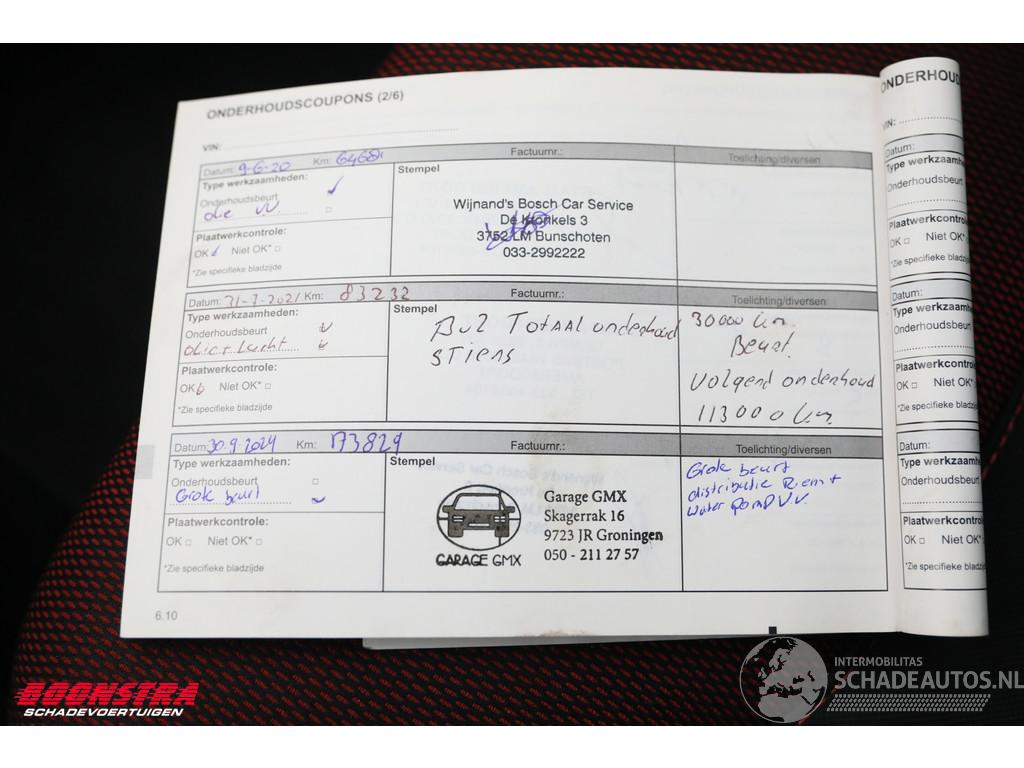 ONDERHOUDSCOUPONS (2/6)
VIN:
Datum: 9-6-20 Km: 64681 Factuurnr.: Toelichting/diversen
Type werkzaamheden:
Onderhoudsbeurt
olie V.V.
Plaatwerkcontrole:
OK Niet OK*
*Zie specifieke bladzijde
Stempel
Wijnand's Bosch Car Service
De Kronkels 3
3752 LM Bunschoten
033-2992222
Datum: 31-7-2021 Km: 83232 Factuurnr.: Toelichting/diversen
Type werkzaamheden:
Onderhoudsbeurt
olie + lucht
Plaatwerkcontrole:
OK Niet OK*
*Zie specifieke bladzijde
Stempel
Totaal onderhoud
STiens
30000 km
Beurt.
Volgend onderhoud
113000 km
Datum: 30.9.2024 Km: 173829 Factuurnr.: Toelichting/diversen
Type werkzaamheden:
Onderhoudsbeurt
Grote beurt
Plaatwerkcontrole:
OK Niet OK*
*Zie specifieke bladzijde
Stempel
GARAGE GMX
Garage GMX
Skagerrak 16
9723 JR Groningen
050 - 211 27 57
Grote beurt
distributie Riem +
water pomp V.V.
6.10
ONDERHOUD
VIN:
Datum:
Type werkzaam
Onderhoudsbeurt
Plaatwerkcontrol
OK Niet OK*
*Zie specifieke bladz
Datum:
Type werkzaam
Onderhoudsbeurt
Plaatwerkcontro
OK Niet OK*
*Zie specifieke bladz
Datum:
Type werkzaam
Onderhoudsbeurt
Plaatwerkcontro
OK Niet OK*
*Zie specifieke bladz
BOONSTRA
SCHADEVOERTUIGEN
INTERMOBILITAS
SCHADEAUTOS.NL